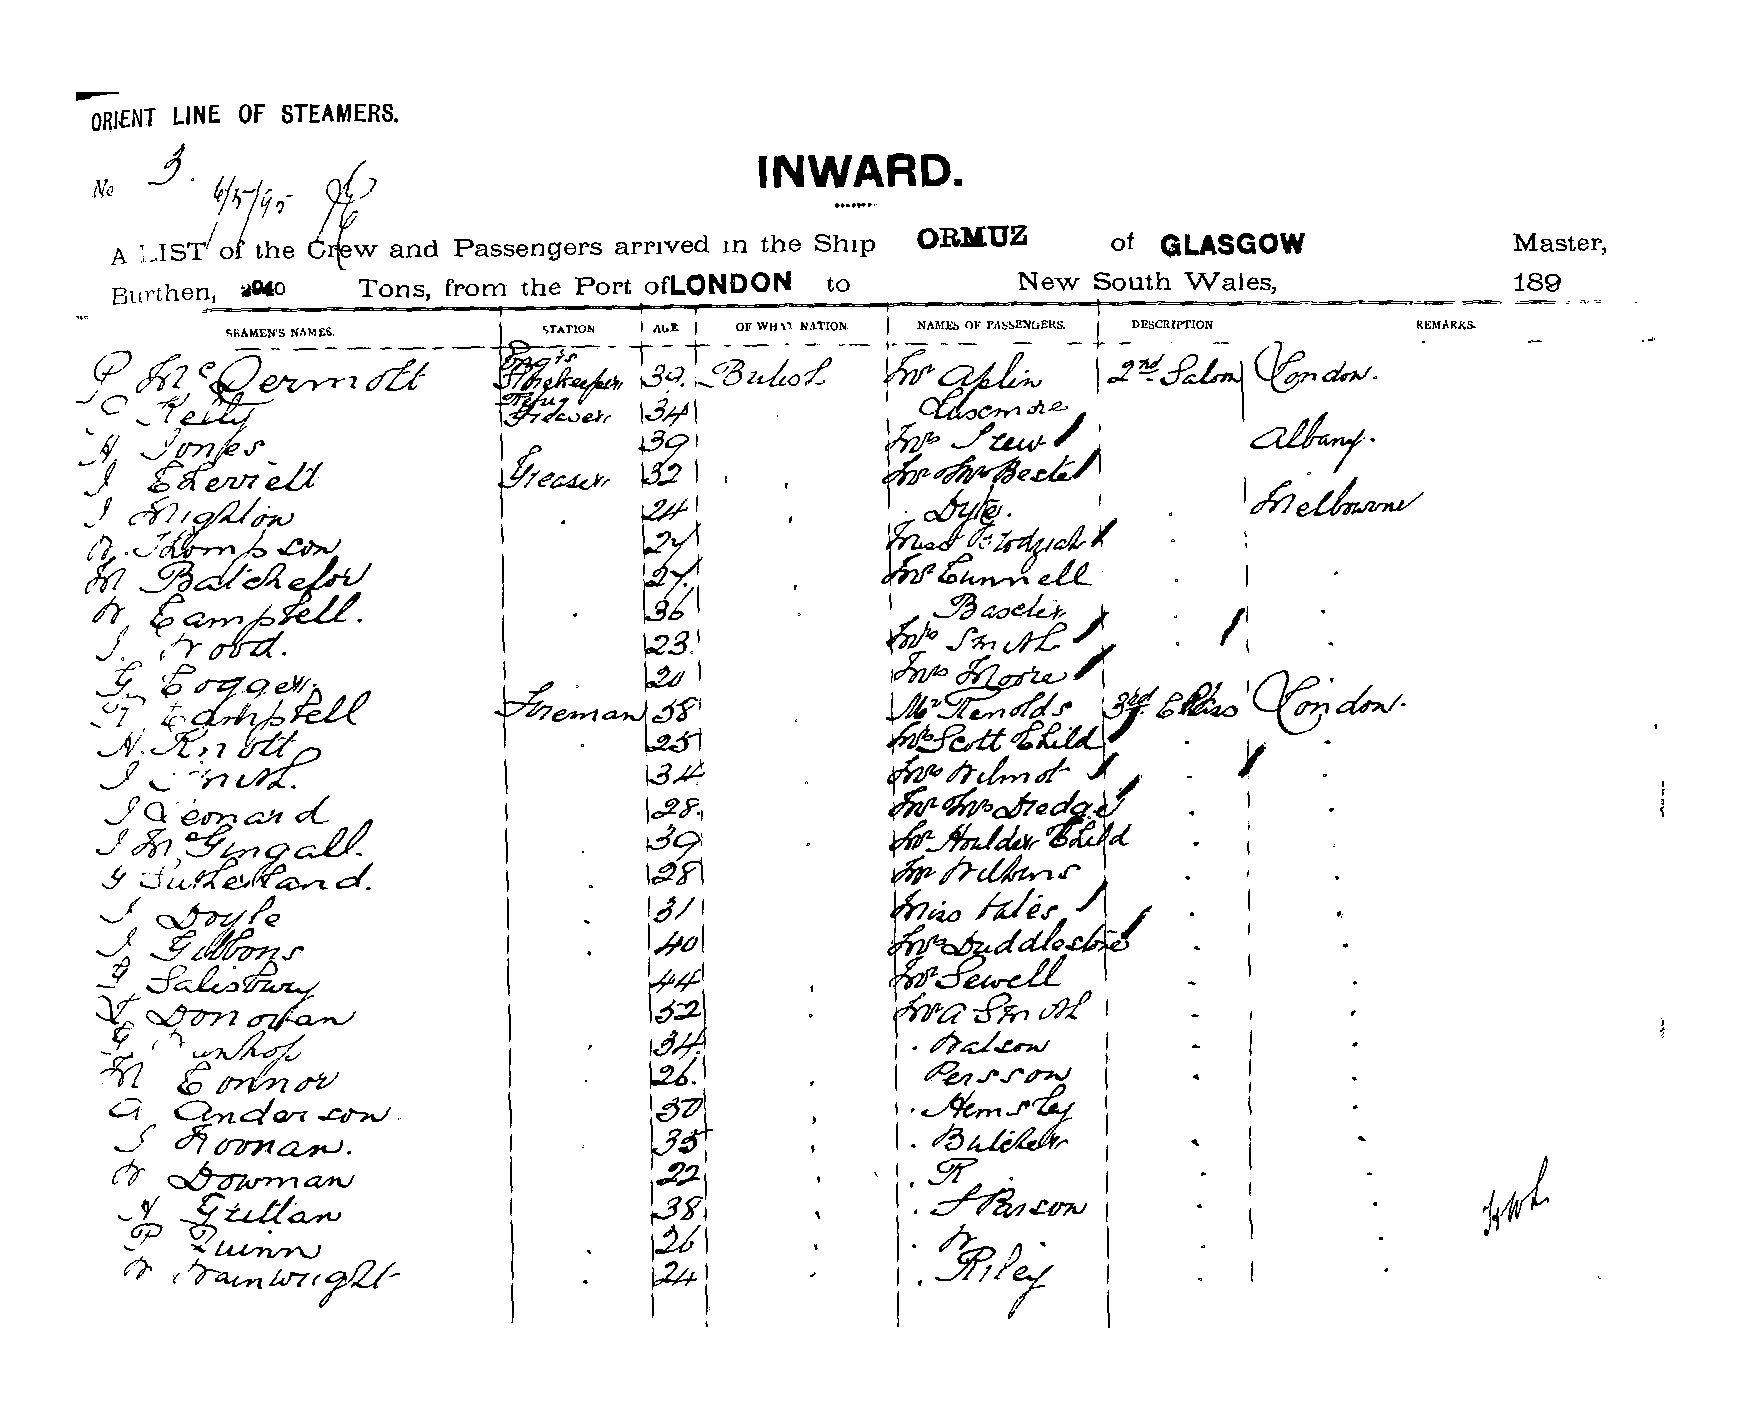 ORIENT LINE OF STEAMERS.
No 3.
6/5/95
INWARD.
A LIST of the Crew and Passengers arrived in the Ship ORMUZ of GLASGOW Master,
Burthen, Tons, from the Port of LONDON to New South Wales, 189
SEAMEN'S NAMES. STATION AGE OF WHAT NATION. NAMES OF PASSENGERS. DESCRIPTION REMARKS.
P McDermott Engrs Storekeeper 39. British Mr Aplin 2nd Saloon London.
C Reily Refrig Greaser 34 Luscmore
H Jones 39 Mrs Stew Albany.
J Cherriett Greaser 32 Mr Mrs Beste
J Mighton 24 Dyte. Melbourne
W. Thompson 27 Miss
M Batchelor 27. Mr Cunnell
W Campbell. 36
J. Wood. 23. Mrs Smith
G Cogger. 20 Mrs Moore
Campbell Fireman 38 Mr Renolds 3rd Class London.
H. Knott 25 Mrs Scott Child
J Smith. 34 Mrs Wilmot
J Leonard 28. Mr Mrs Dredge
J McGingall. 39 Mr Houlder Child
G Sutherland. 28 Mr Wilkins
J Doyle 31 Miss Hales
J Gibbons 40 Mrs Duddlestone
G Salisbury 44 Mr Sewell
Donovan 32 Mr A Smith
34. Watson
M Connor 26. Persson
A Anderson 30 Hemsley
J Noonan. 35 Butcher
W Dowman 22 R
H Grellan 38 S Parson
P Quinn 26 W
W Wainwright 24 Riley